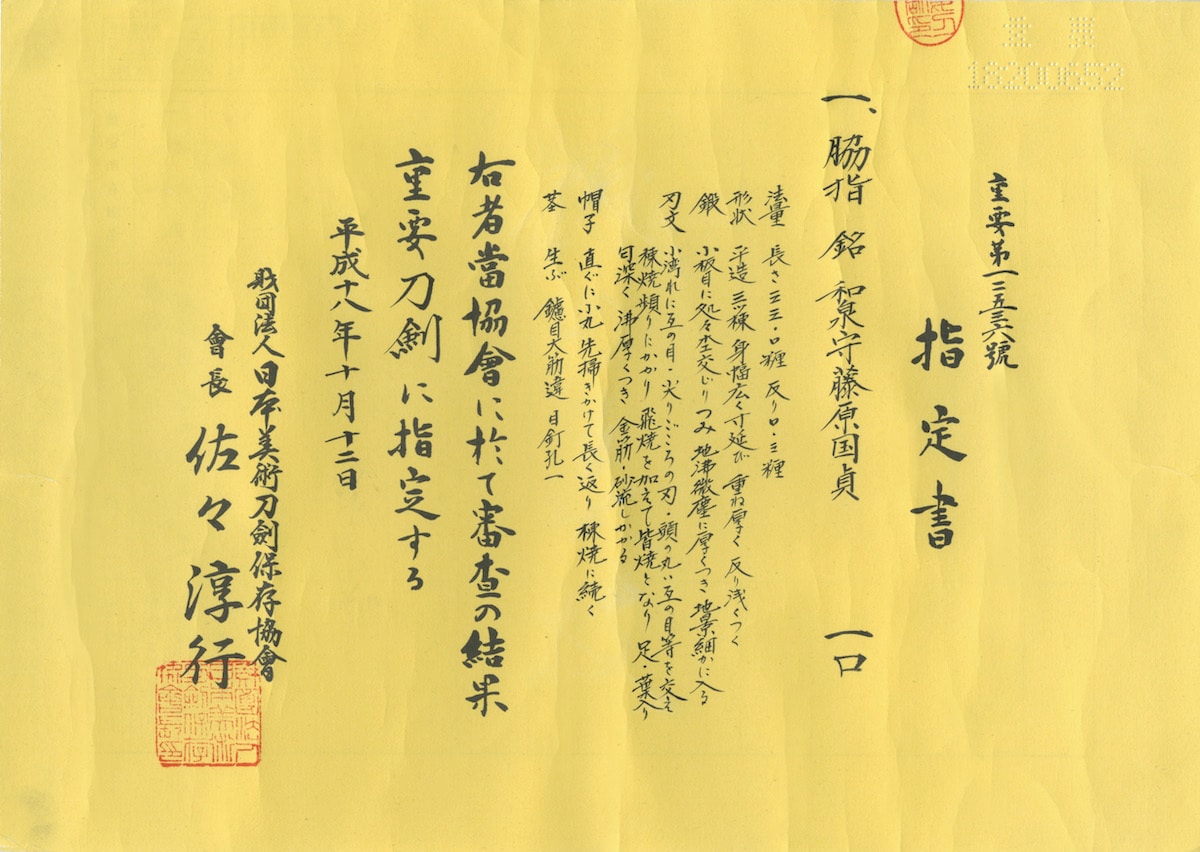 重要
18200652
重要第一二五三六號
指定書
一、脇指 銘 和泉守藤原国貞 一口
法量 長さ 三三・〇糎 反り 〇・三糎
形状 平造 三ツ棟 身幅広く寸延び 重ね厚く 反り浅くつく
鍛 小板目に処々杢交じりつみ 地沸微塵に厚くつき 地景細かに入る
刃文 小湾れに互の目・尖りごころの刃・頭の丸い互の目等を交え
棟焼頻りにかかり 飛焼を加えて皆焼となり 足・葉入り
匂深く 沸厚くつき 金筋・砂流しかかる
帽子 直ぐに小丸 先掃きかけて長く返り 棟焼に続く
茎 生ぶ 鑢目大筋違 目釘孔一
右者當協會に於て審査の結果
重要刀剣に指定する
平成十八年十月十二日
財団法人日本美術刀劍保存協會
會長 佐々淳行